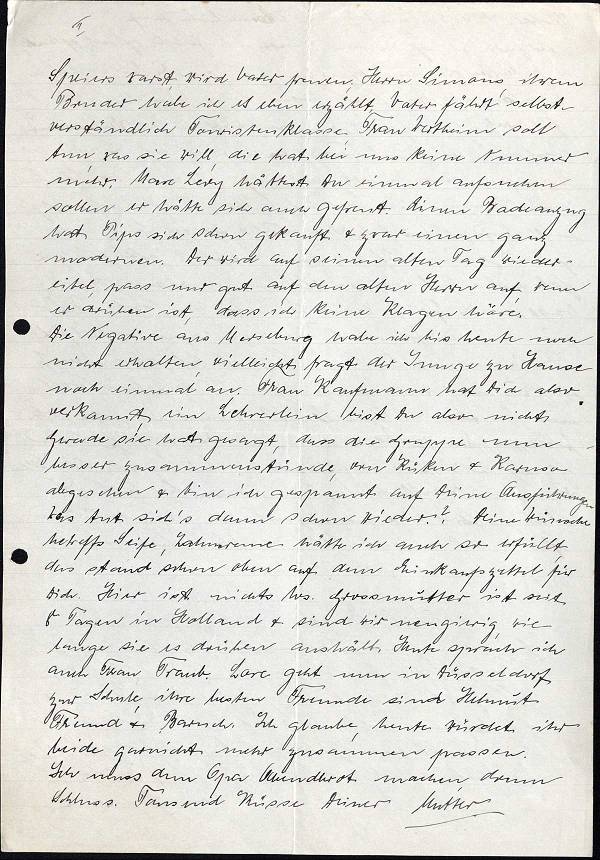 II
Speiers warst wird Vater freuen. Herrn Simons ihrem
Bruder habe ich es eben erzählt. Vater fährt selbst-
verständlich Touristenklasse. Frau Wertheim soll
tun was sie will, die hat bei uns keine Nummer
mehr. Marc Levy hättest Du einmal aufsuchen
sollen er hätte sich auch gefreut. Einen Badeanzug
hat Pips sich schon gekauft & zwar einen ganz
modernen. Der wird auf seinen alten Tag wieder-
eitel, pass nur gut auf den alten Herrn auf, wenn
er drüben ist, dass ich keine Klagen höre.
Die Negative aus Merseburg habe ich bis heute noch
nicht erhalten, vielleicht fragt der Junge zu Hause
noch einmal an. Frau Kaufmann hat Dich also
verkannt, ein Lehrerlein bist Du also nicht,
Gerade sie hat gesagt, dass die Gruppe nun
besser zusammenstünde, von Küken &
abgesehen & bin ich gespannt auf Deine Ausführungen
Was tut sich's denn schon wieder?. Deine Wünsche
betreffs Seife, Zahncreme hätte ich auch so erfüllt
das stand schon oben auf dem Einkaufszettel für
Dich. Hier ist nichts los. Grossmutter ist seit
8 Tagen in Holland & sind wir neugierig wie
lange sie es drüben aushält. Heute sprach ich
auch Frau Traub. Lore geht nun in Düsseldorf
zur Schule, ihre besten Freunde sind Helmut
Freund & Baruch. Ich glaube, heute würdet ihr
beide garnicht mehr zusammen passen.
Ich muss dem Opa Abendbrot machen drum
Schluss. Tausend Küsse Deiner Mutter